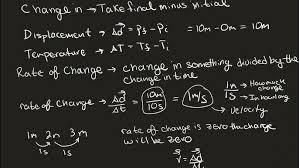 Change in → Take final minus initial
Displacement → Δd⃗ = Pf - Pi = 10m - 0m = 10m
Temperature → ΔT = Tf - Ti
Rate of Change → change in something divided by the
change in time
rate of change → Δd⃗/Δt = 10m/10s = 1m/s
1m → How much change
1s → In how long
velocity
1m 2m 3m
1s 1s
rate of change is zero the change
will be zero
v⃗ = Δd⃗/Δt